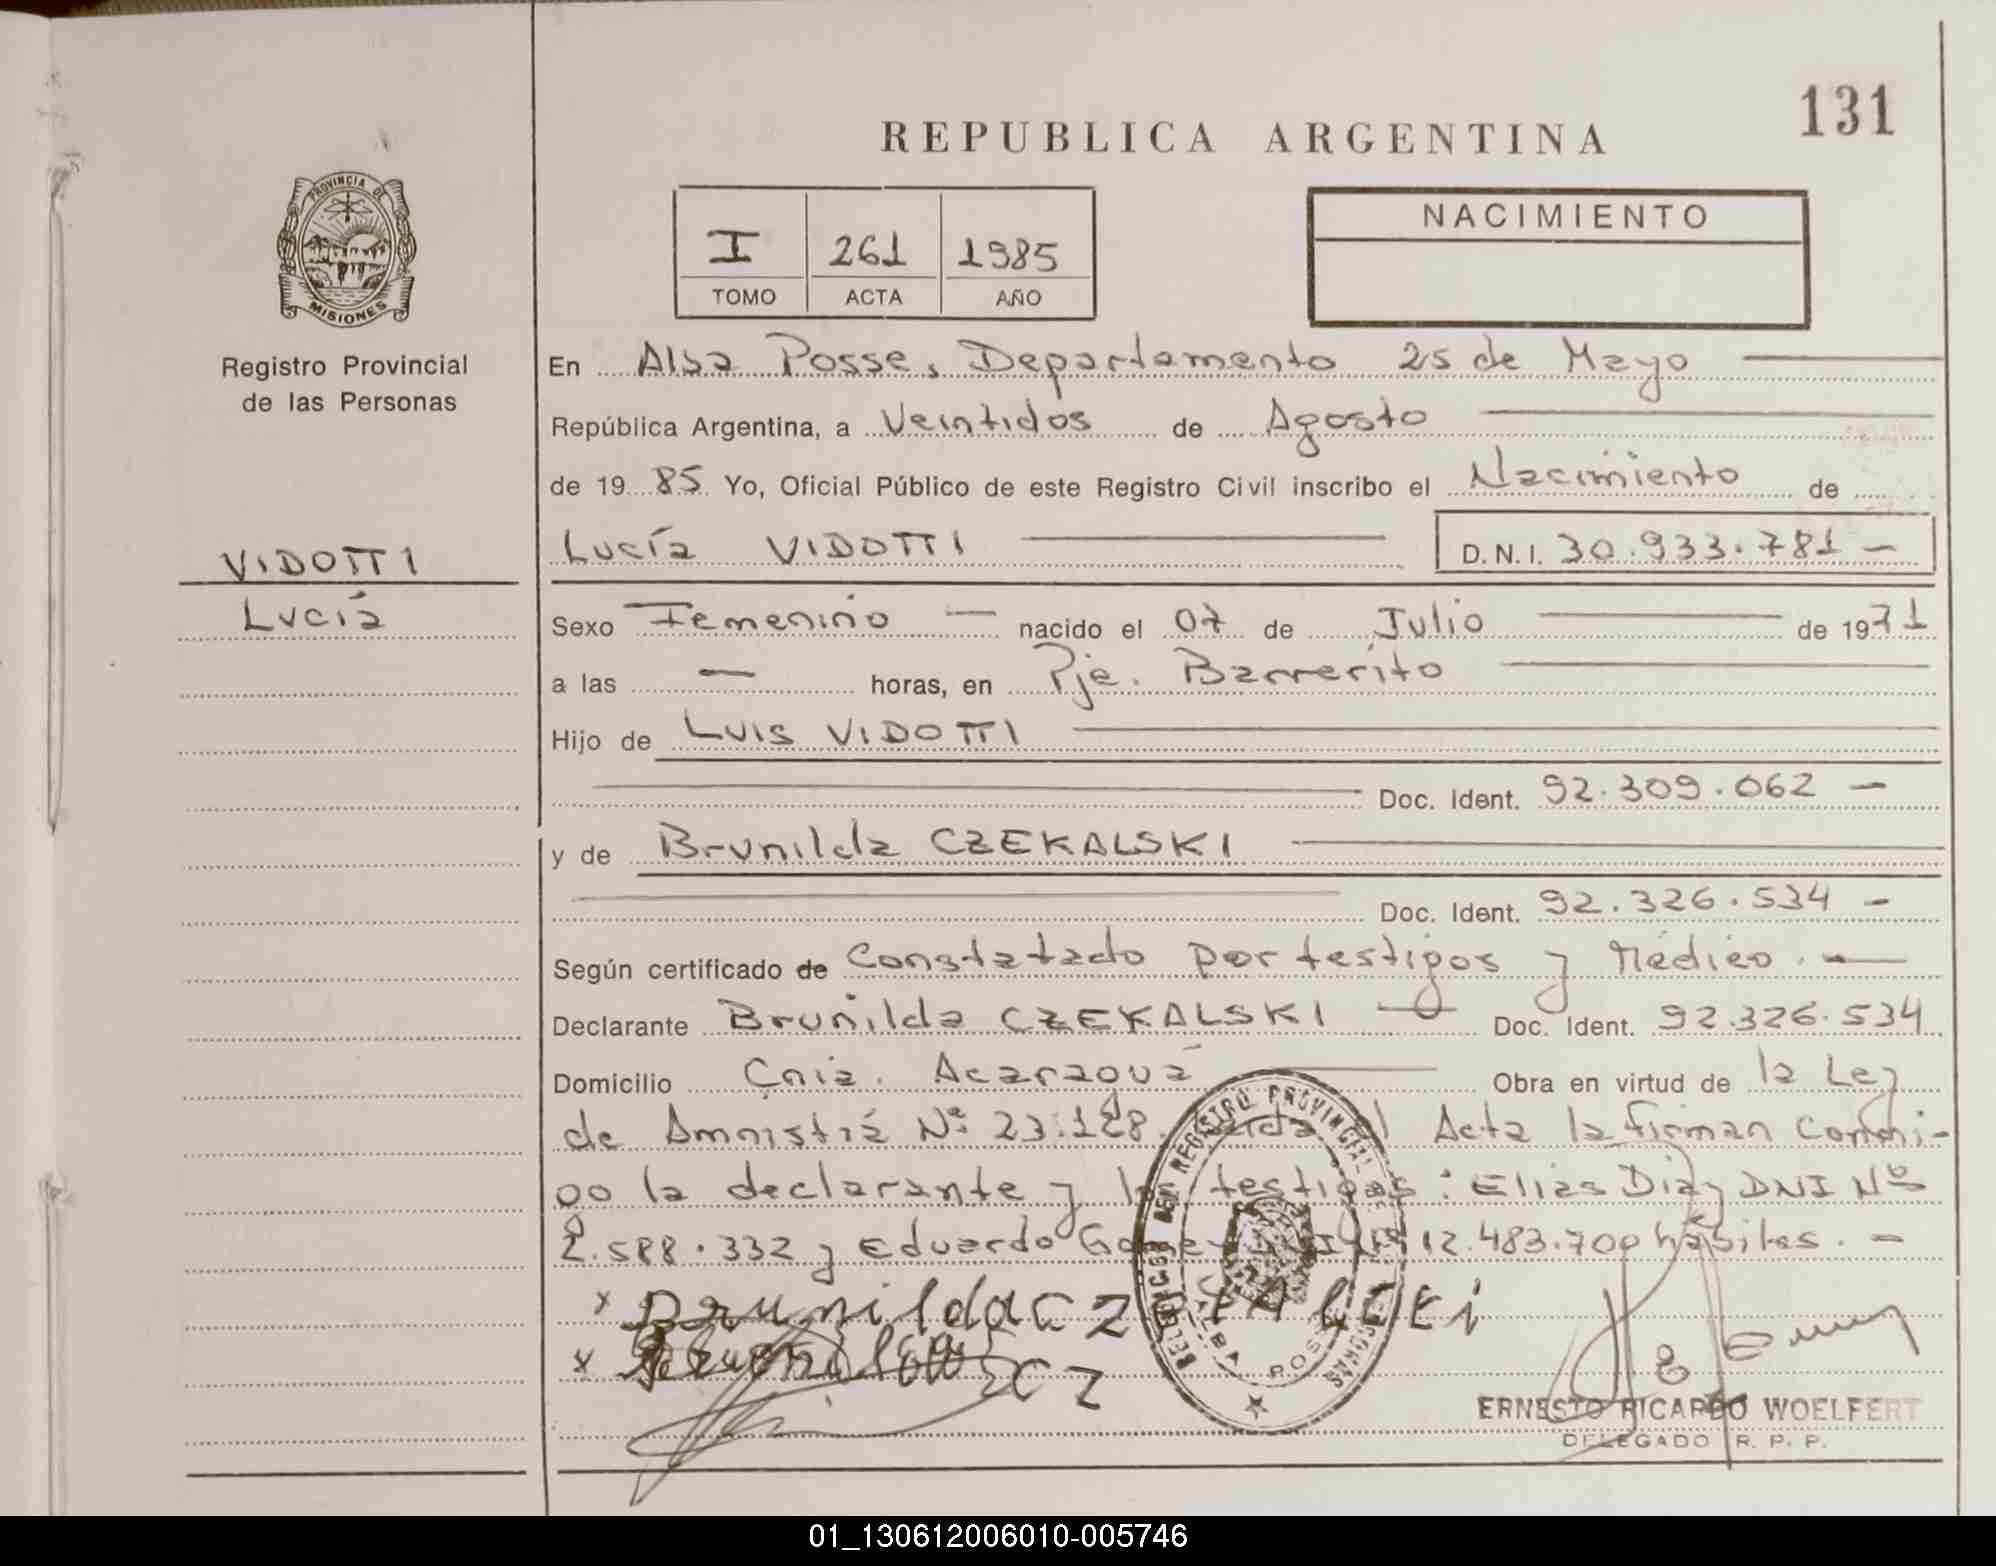 131
REPUBLICA ARGENTINA
PROVINCIA DE
MISIONES
Registro Provincial
de las Personas
I 261 1985
TOMO ACTA AÑO
NACIMIENTO
En Alba Posse, Departamento 25 de Mayo
República Argentina, a Veintidos de Agosto
de 1985 Yo, Oficial Público de este Registro Civil inscribo el Nacimiento de
VIDOTTI
Lucía
Lucía VIDOTTI D.N.I. 30.933.781 –
Sexo Femenino — nacido el 07 de Julio de 1971
a las — horas, en Pje. Barrerito
Hijo de LUIS VIDOTTI
Doc. Ident. 92.309.062 –
y de Brunilda CZEKALSKI
Doc. Ident. 92.326.534 –
Según certificado de Constatado por testigos y Médico. —
Declarante Brunilda CZEKALSKI — Doc. Ident. 92.326.534
Domicilio Cnia. Acaraguá Obra en virtud de la Ley
de Amnistía Nº 23.128. Acta la firman conmi-
go la declarante y testigos: Elias Diaz DNI Nº
2.588.332 y Eduardo 12.483.700 hábiles. –
x Brunilda CZ
x Brunilda CZ
REGISTRO PROVINCIAL
ALBA POSSE
ERNESTO RICARDO WOELFERT
DELEGADO R. P. P.
01_130612006010-005746